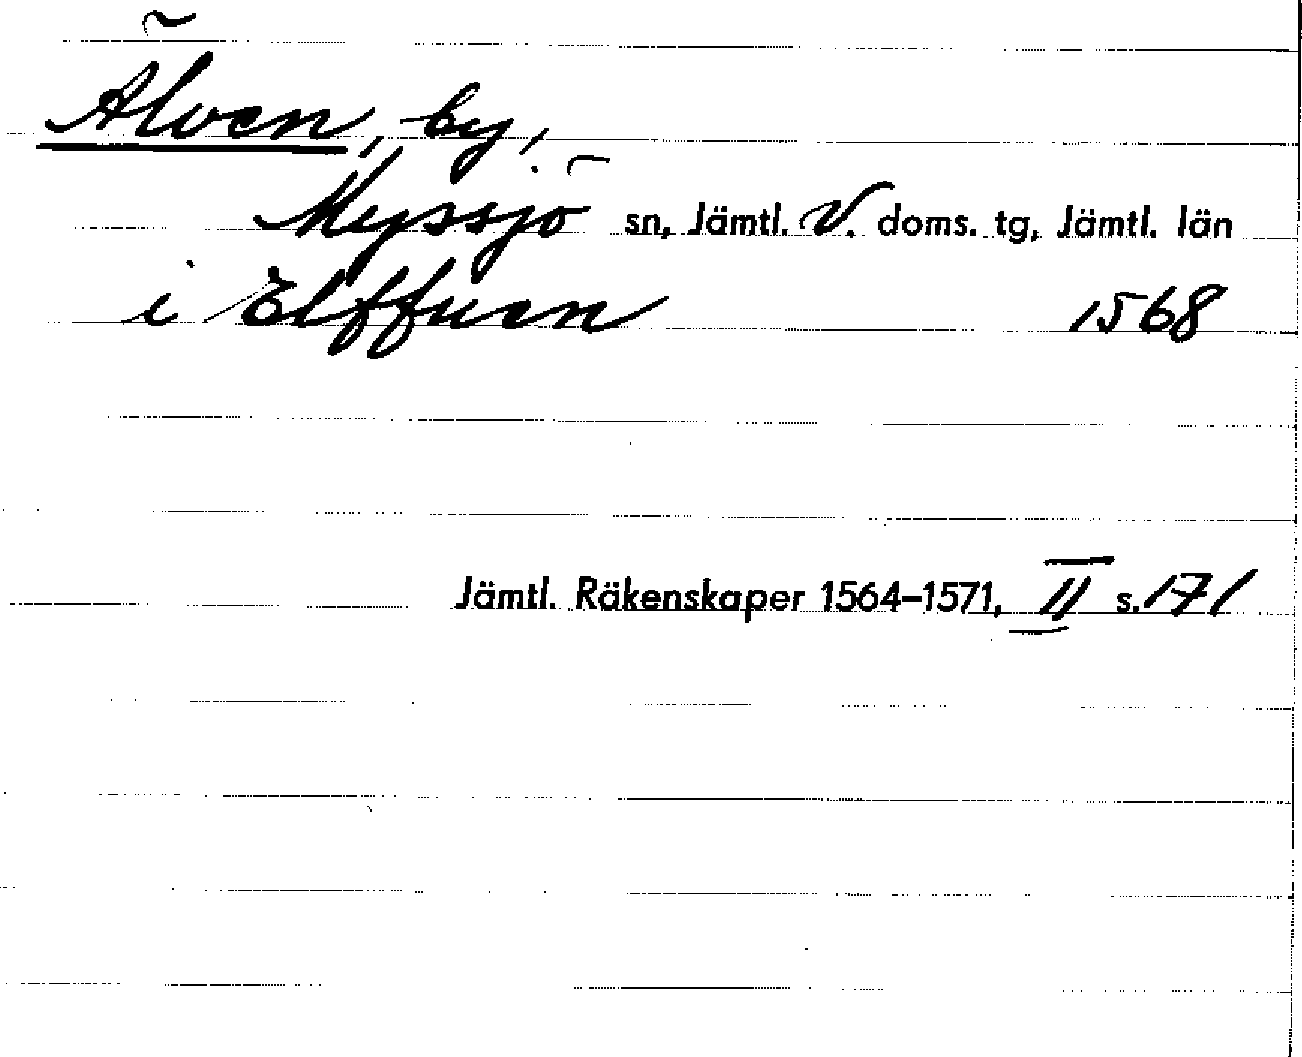 Älven, by,
Myssjö sn, Jämtl. V. doms. tg, Jämtl. län
i Elffuen 1568
Jämtl. Räkenskaper 1564–1571, II s. 171